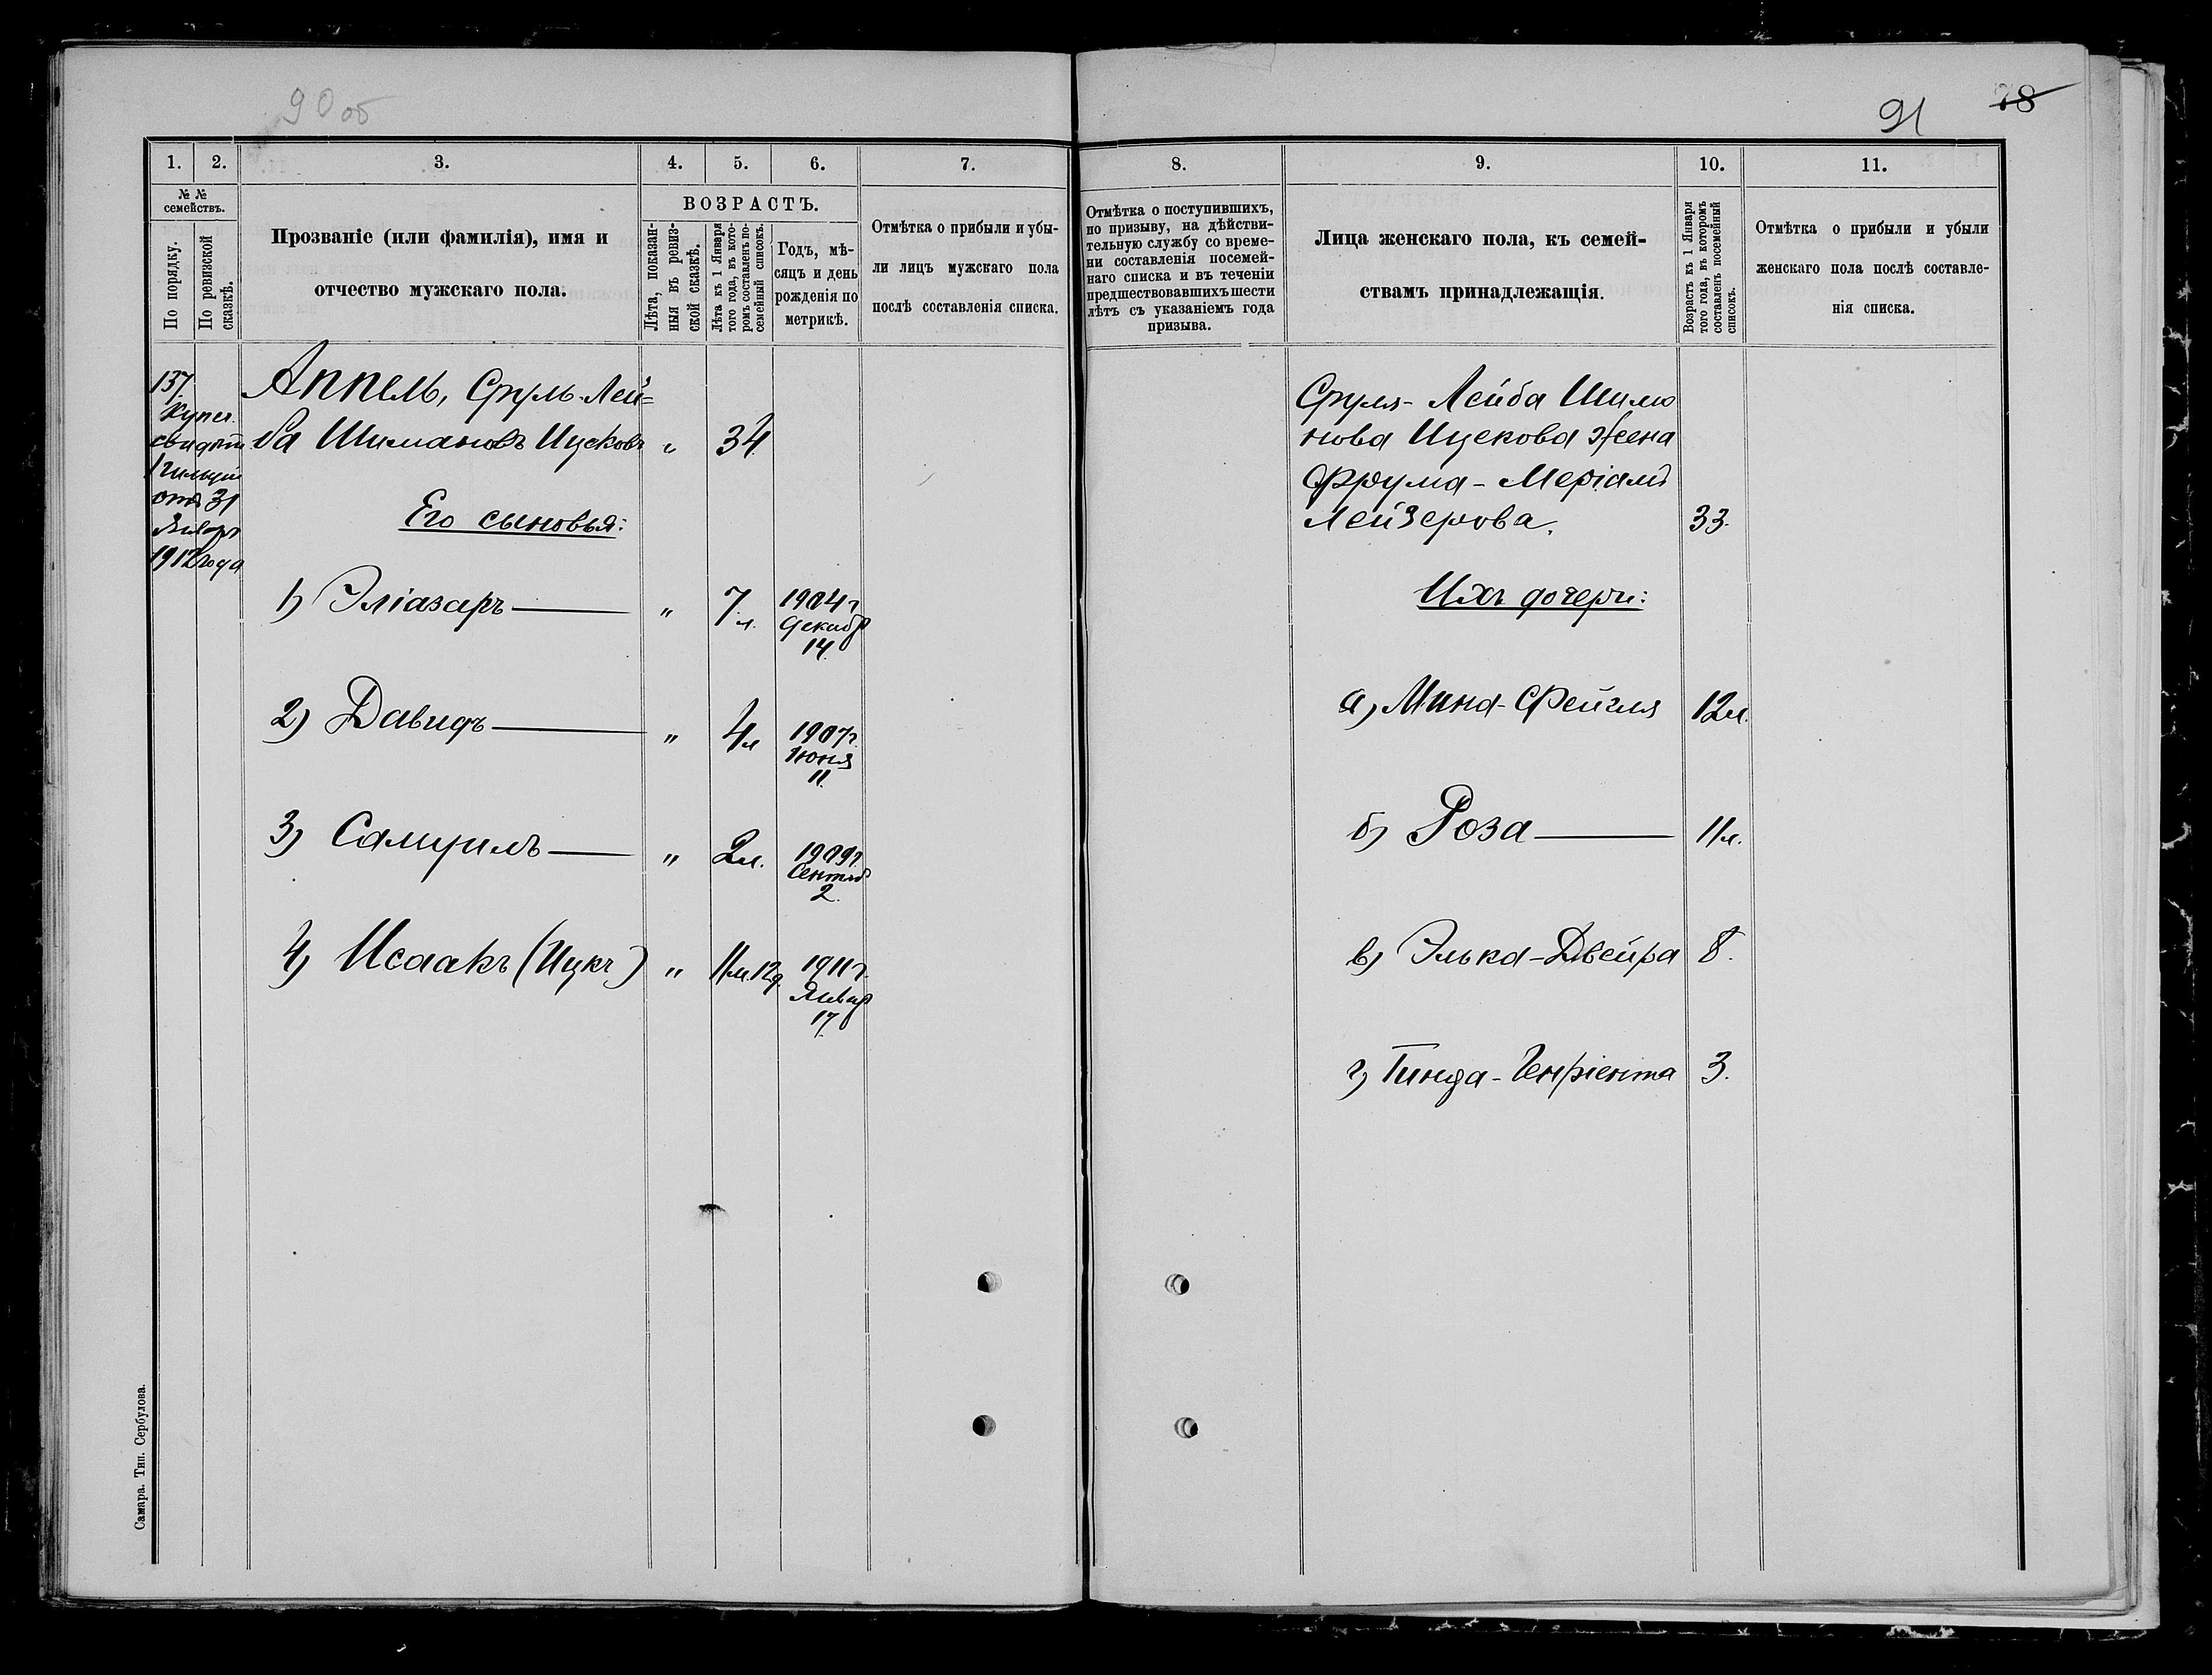 90 об
1. 2. 3. 4. 5. 6. 7.
№ №
семействъ.
По порядку.
По ревизской
сказкѣ.
Прозваніе (или фамилія), имя и
отчество мужскаго пола.
ВОЗРАСТЪ.
Лѣта, показан-
ныя въ ревиз-
ской сказкѣ.
Лѣта къ 1 Января
того года, въ кото-
ромъ составленъ по-
семейный списокъ.
Годъ, мѣ-
сяцъ и день
рожденія по
метрикѣ.
Отмѣтка о прибыли и убы-
ли лицъ мужскаго пола
послѣ составленія списка.
137
Купеч.
отъ 31
Январ
1912 года
Аппель, Сруль-Лей=
ба Шимановъ Ицековъ " 34
Его сыновья:
1) Эліазаръ " 7 л. 1904 г
Декабр
14
2) Давидъ " 4 л 1907 г.
Іюня
11
3) Самуилъ " 2 л. 1909 г.
Сентяб
2
4) Исаакъ (Ицкъ) " 11 м. 12 д. 1911 г.
Январ
17
Самара. Тип. Сербулова.
91 78
8. 9. 10. 11.
Отмѣтка о поступившихъ,
по призыву, на дѣйстви-
тельную службу со време-
ни составленія посемей-
наго списка и въ теченіи
предшествовавшихъ шести
лѣтъ съ указаніемъ года
призыва.
Лица женскаго пола, къ семей-
ствамъ принадлежащія.
Возрастъ къ 1 Января
того года, въ которомъ
составленъ посемейный
списокъ.
Отмѣтка о прибыли и убыли
женскаго пола послѣ составле-
нія списка.
Сруля-Лейба Шимо
нова Ицекова жена
Фрума-Меріамъ
Лейзерова. 33.
Ихъ дочери:
а) Мина-Фейгля 12 л.
б) Роза 11 л.
в) Элька-Двейра 8.
г) Гинда-Генріента 3.